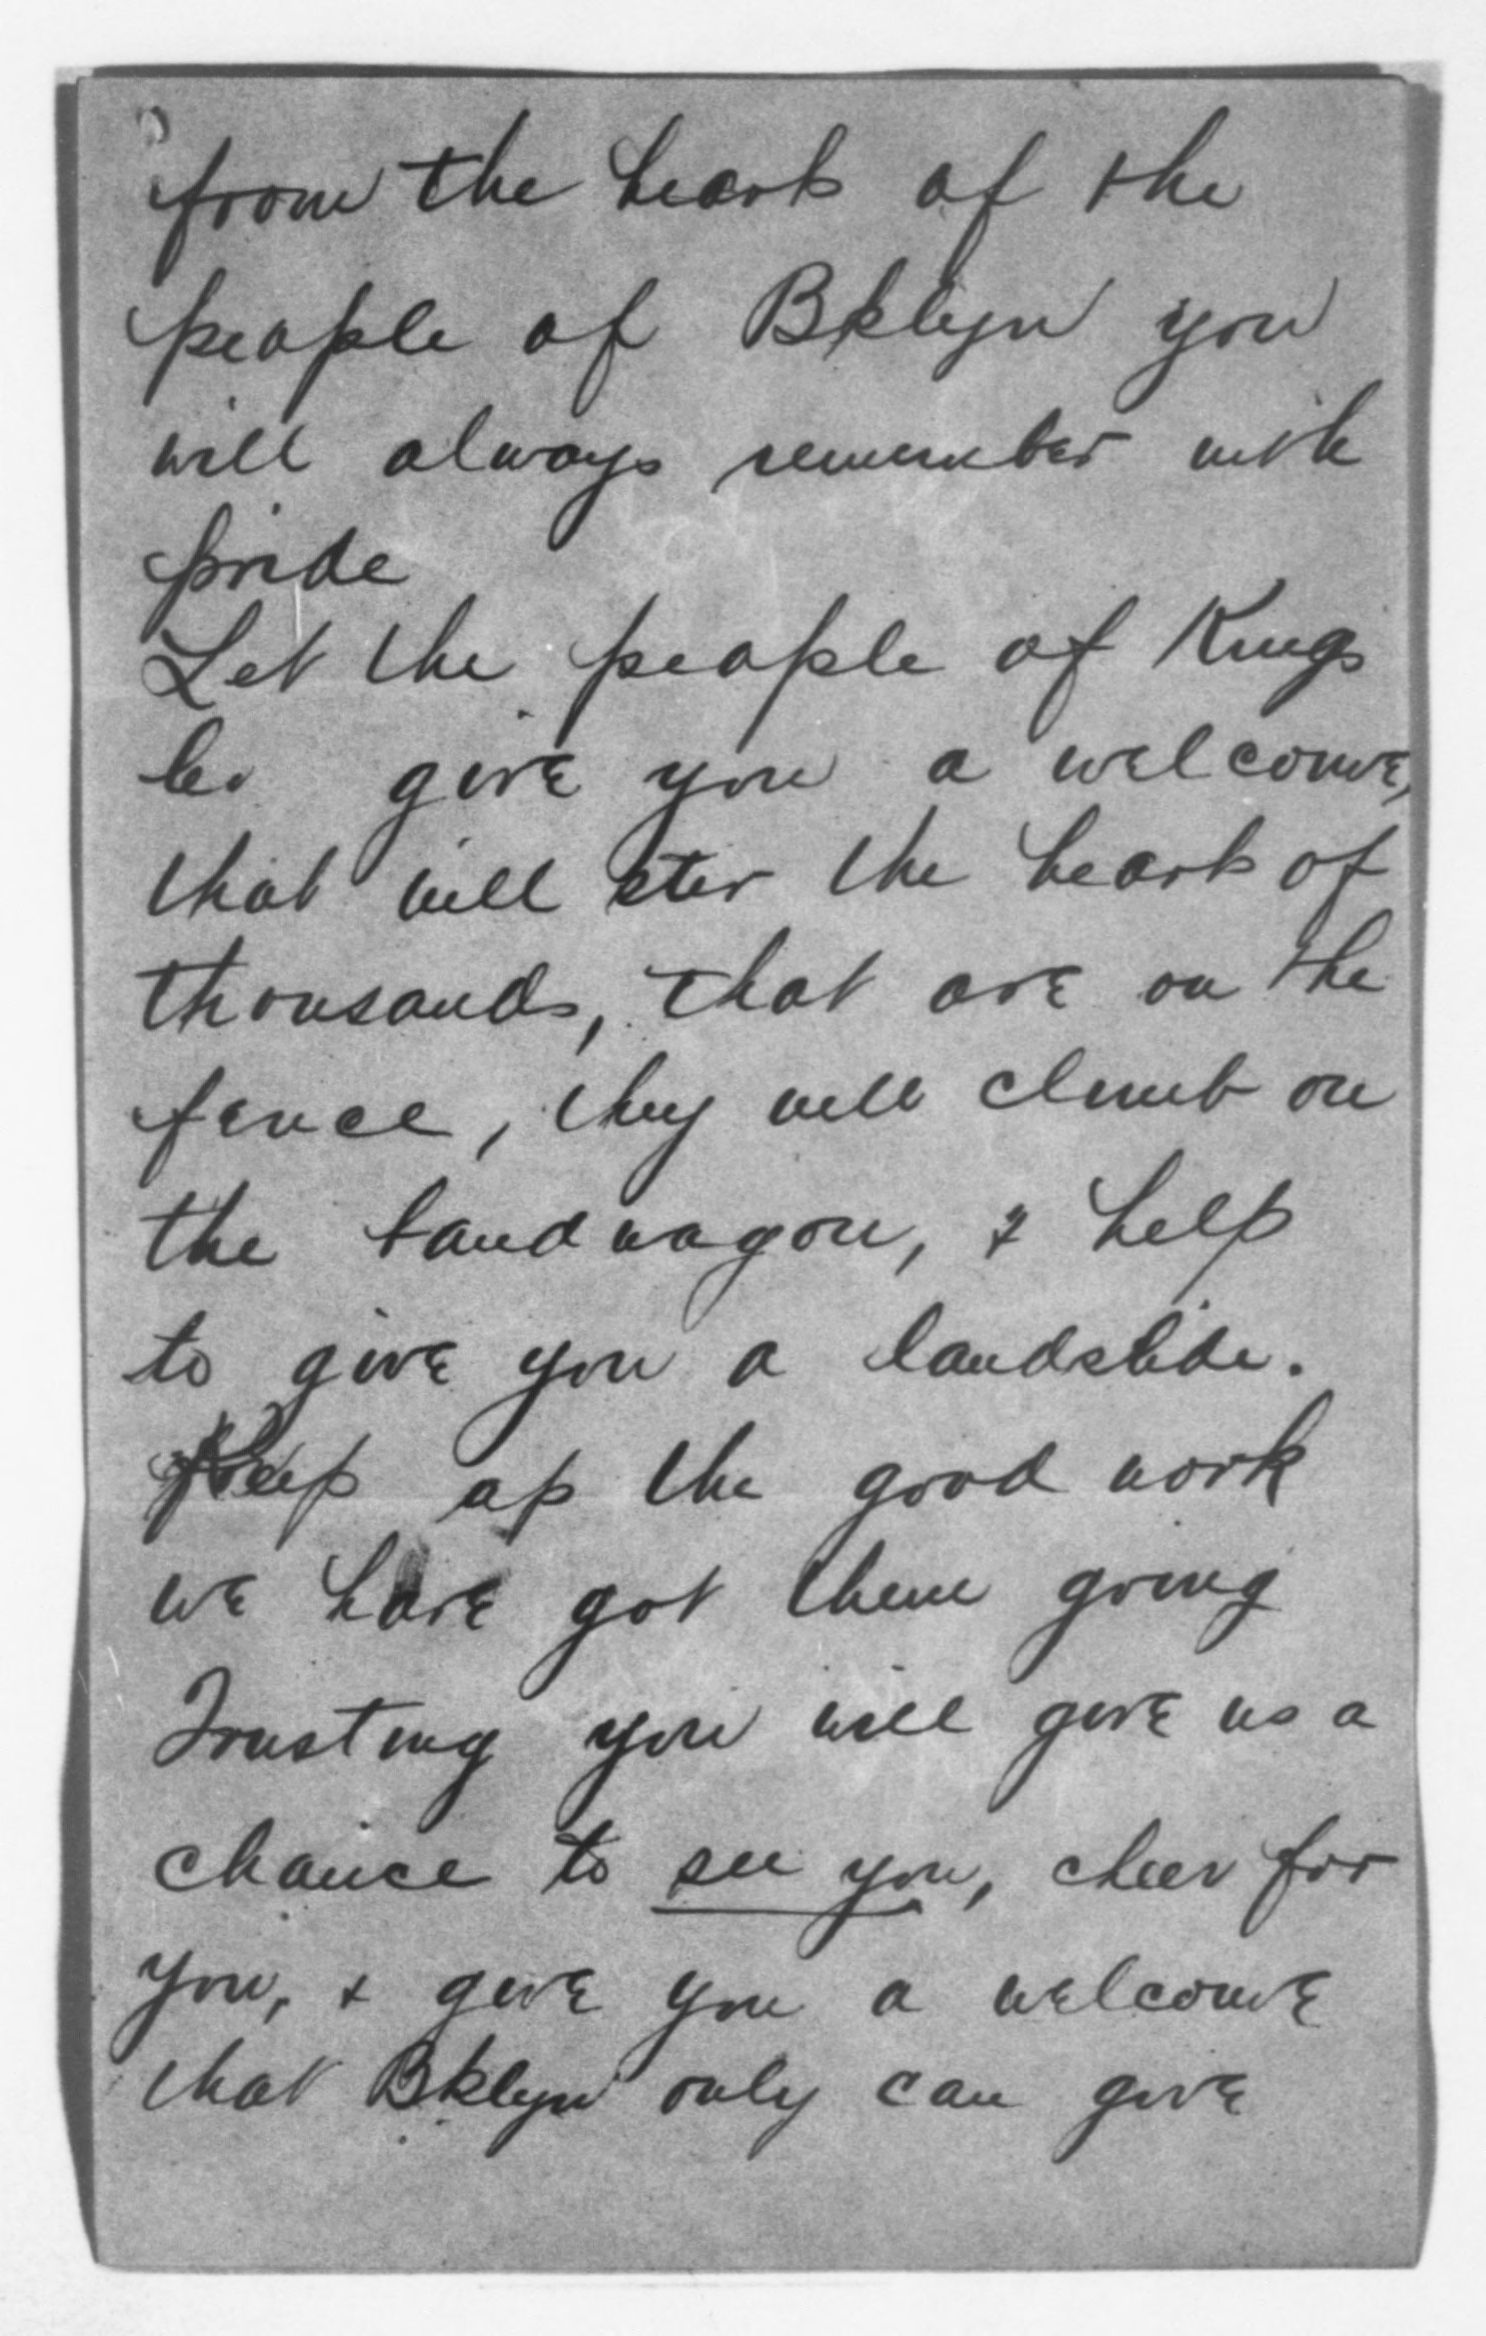 from the heart of the
people of Bklyn you
will always remember with
pride
Let the people of Kings
Co give you a welcome,
that will stir the heart of
thousands, that are on the
fence, they will climb on
the bandwagon, & help
to give you a landslide.
Keep up the good work
we have got them going
Trusting you will give us a
chance to see you, cheer for
you, & give you a welcome
that Bklyn only can give